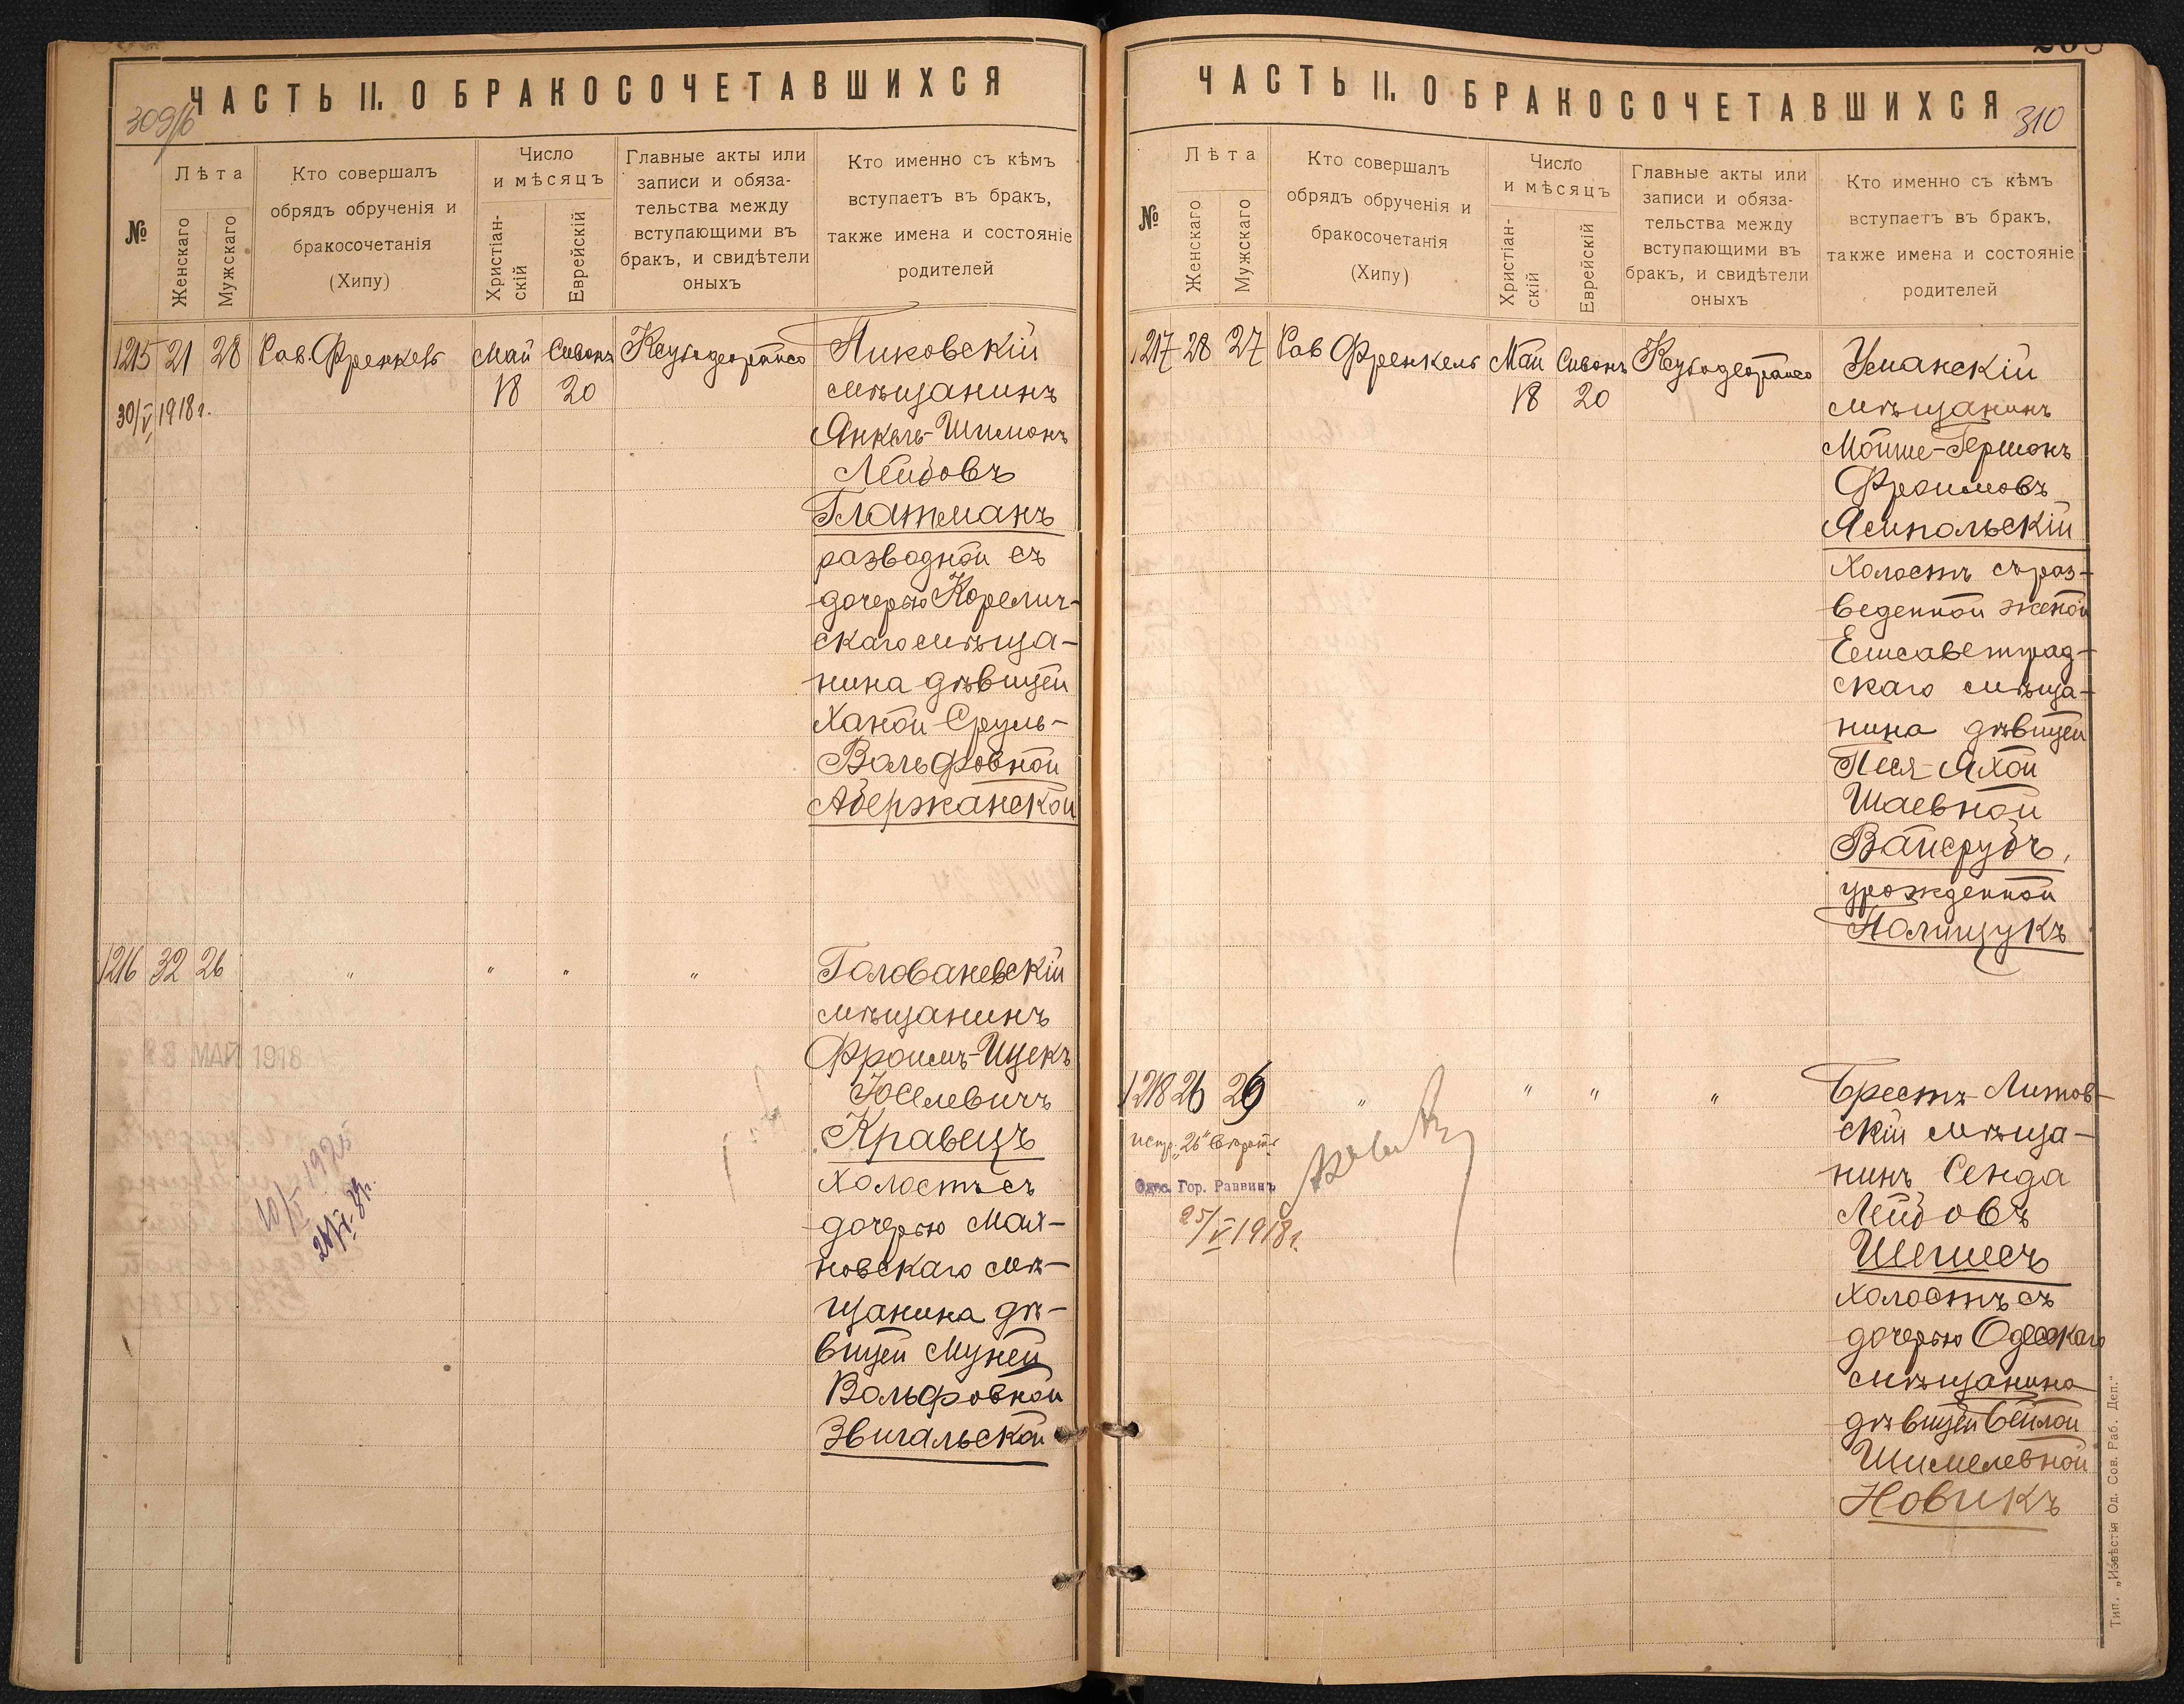 ЧАСТЬ II. О БРАКОСОЧЕТАВШИХСЯ
309/б
№
Лѣта
Женскаго
Мужскаго
Кто совершалъ
обрядъ обрученія и
бракосочетанія
(Хипу)
Число
и мѣсяцъ
Христіан-
скій
Еврейскій
Главные акты или
записи и обяза-
тельства между
вступающими въ
бракъ, и свидѣтели
оныхъ
Кто именно съ кѣмъ
вступаетъ въ бракъ,
также имена и состояніе
родителей
1215 21 28 Рав. Френкель Май Сивонъ
18 20
30/V 1918 г.
Пиковскій
мѣщанинъ
Янкель-Шимонъ
Лейбовъ
Глатманъ
разводной съ
дочерью Корелич-
скаго мѣща-
нина дѣвицей
Ханой Сруль-
Вольфовной
Абержанской
1216 32 26 " " " "
Голованевскій
мѣщанинъ
Фроимъ-Ицекъ
Іоселевичъ
Кравецъ
холостъ съ
дочерью Мах-
новскаго мѣ-
щанина дѣ-
вицей Муней
Вольфовной
Звигальской
28 МАЙ 1918
ЧАСТЬ II. О БРАКОСОЧЕТАВШИХСЯ
310
№
Лѣта
Женскаго
Мужскаго
Кто совершалъ
обрядъ обрученія и
бракосочетанія
(Хипу)
Число
и мѣсяцъ
Христіан-
скій
Еврейскій
Главные акты или
записи и обяза-
тельства между
вступающими въ
бракъ, и свидѣтели
оныхъ
Кто именно съ кѣмъ
вступаетъ въ бракъ,
также имена и состояніе
родителей
1217 28 27 Рав Френкель Май Сивонъ
18 20
Уманскій
мѣщанинъ
Мойше-Гершонъ
Фроимовъ
Ямпольскій
холостъ съ раз-
веденной женой
Елисаветград-
скаго мѣща-
нина дѣвицей
Песя-Яхой
Шаевной
Вайсрубъ,
урожденной
Полищукъ
1218 26 26 " " " "
Одес. Гор. Раввинъ
25/V 1918 г.
Брестъ-Литов-
скій мѣща-
нинъ Сенда
Лейбовъ
холостъ съ
дочерью Одесскаго
мѣщанина
дѣвицей Бейлой
Шимелевной
Новикъ
Тип. „Извѣстія Од. Сов. Раб. Деп."